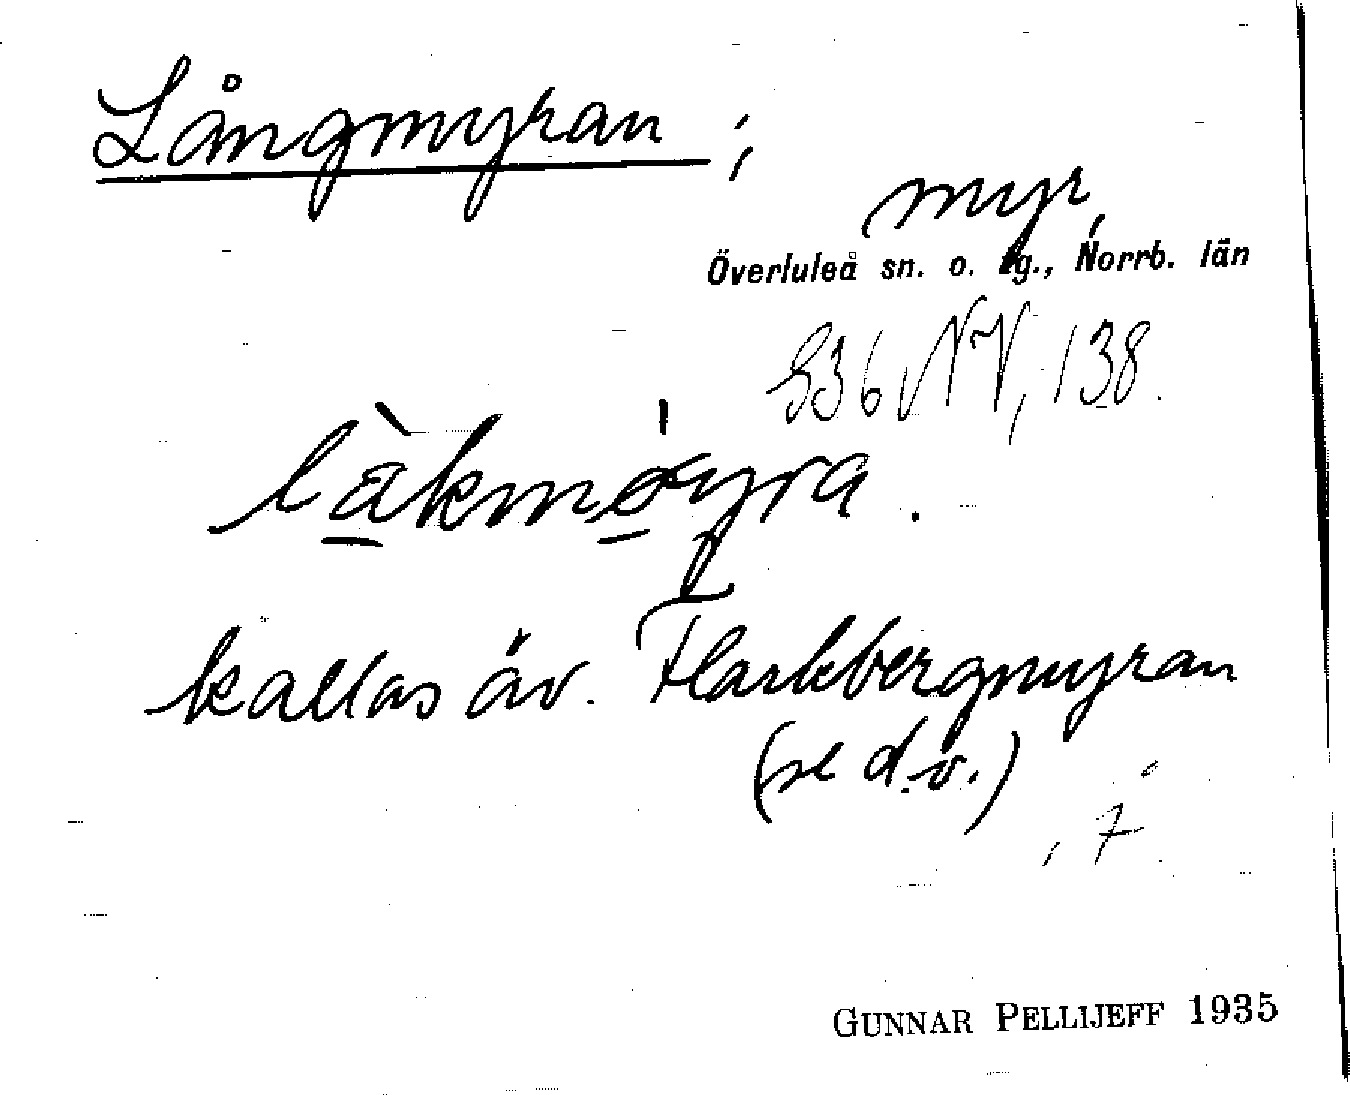 Långmyran ;
myr,
Överluleå sn. o. tg., Norrb. län
S36 NV, 138.
kallas äv. Flarkbergmyran
(se d.o.)
7
GUNNAR PELLIJEFF 1935